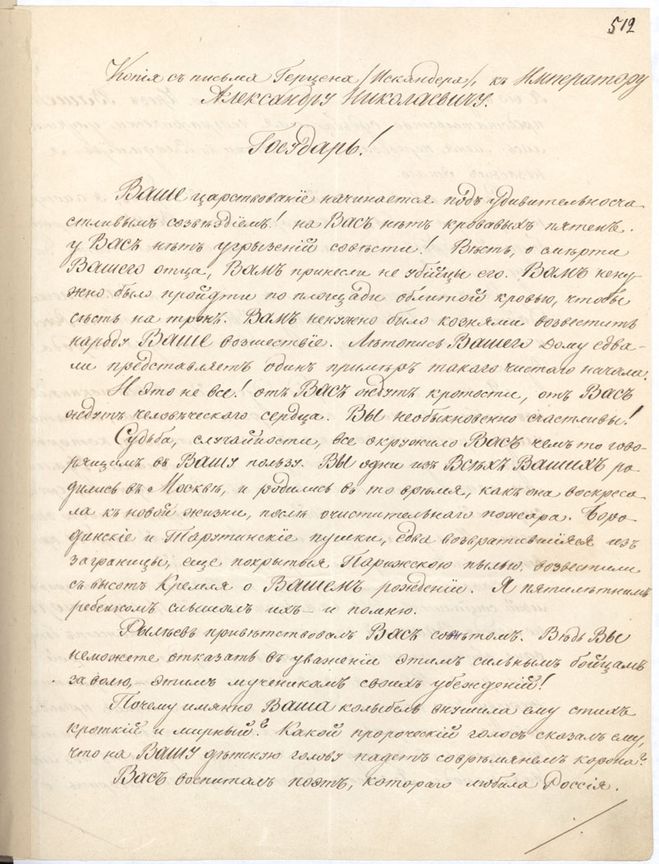 512
Копія съ письма Герцена /Искандера/, къ Императору
Александру Николаевичу.
Государь!
Ваше царствованіе начинается подъ удивительносча-
стливымъ созвѣздіемъ! на Васъ нѣтъ кровавыхъ пятенъ.
у Васъ нѣтъ угрызеній совѣсти! Вѣсть, о смѣрти
Вашего отца, Вамъ принесли не убійцы его. Вамъ нену-
жно было пройдти по площади облитой кровью, чтобы
сѣсть на тронъ. Вамъ ненужно было кознями возвестить
народу Ваше возшествіе. Лѣтопись Вашего дому едва-
ли представляетъ одинъ примѣръ такого чистаго начала.
И это не все! отъ Васъ ждутъ кротости, отъ Васъ
ждутъ человѣческаго сердца. Вы необыкновенно счастливы!
Судьба, случайности, все окружило Васъ чемъ то гово-
рящимъ въ Вашу пользу. Вы одни изъ Всѣхъ Вашихъ ро-
дились въ Москвѣ, и родились въ то врѣмя, какъ она воскреса-
ла къ новой жизни, послѣ очистительнаго пожара. Боро-
динскіе и Тарутинскіе пушки, едва возвратившіяся изъ
заграницы, еще покрытыя Парижскою пылью, возвестили
съ высотъ Кремля о Вашемъ рожденіи. Я пятилѣтнимъ
ребенкомъ слышалъ ихъ – и помню.
Рылѣевъ привѣтствовалъ Васъ совѣтомъ. Вѣдь Вы
неможете отказать въ уваженіи этимъ сильнымъ бойцамъ
за волю, – этимъ мученикамъ своихъ убежденій!
Почему имянно Ваша колыбель внушила ему стихъ
кроткій и мирный? Какой пророческій голосъ сказалъ ему,
что на Вашу дѣтскую голову падетъ соврѣмянемъ корона?
Васъ воспиталъ поэтъ, котораго любила Россія.